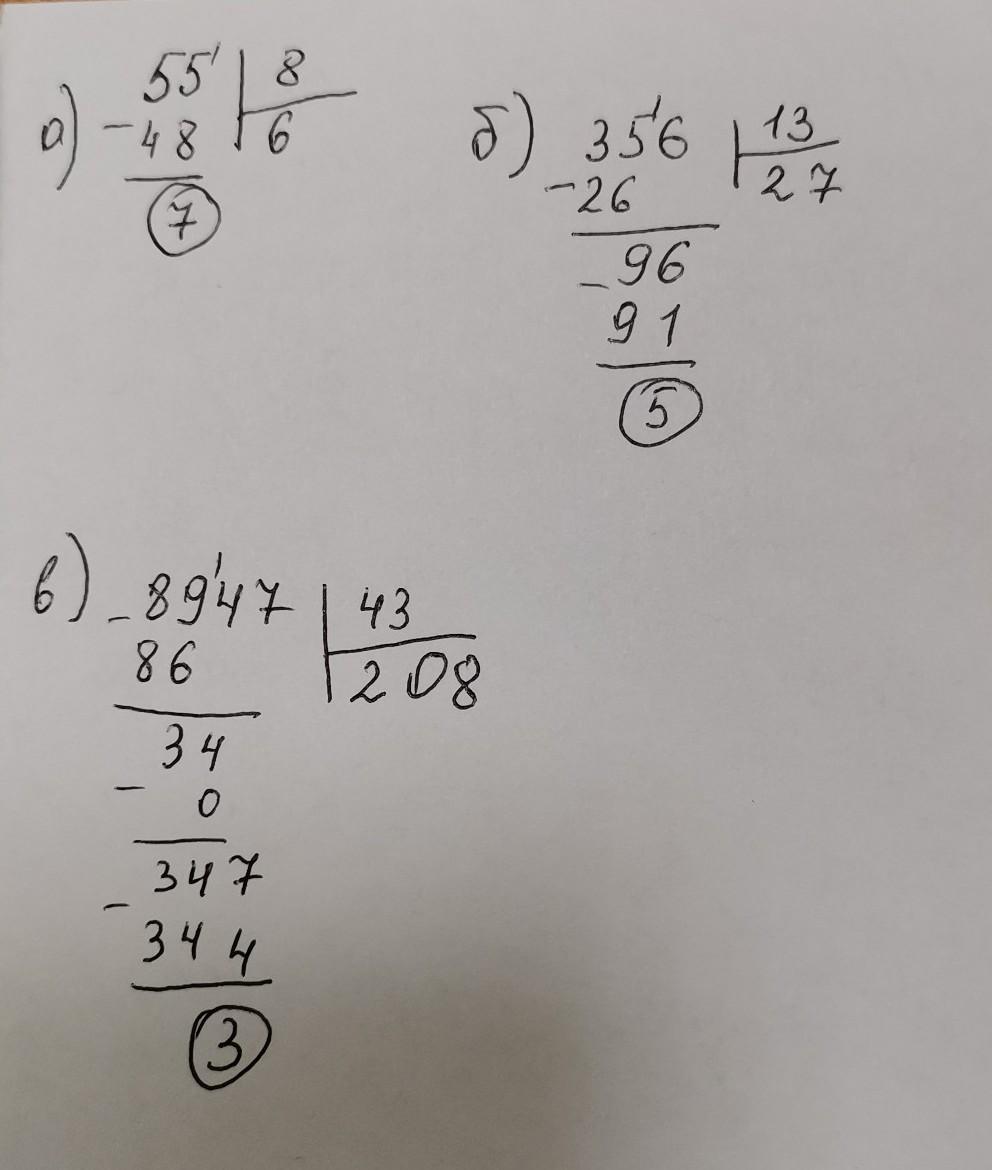 а) 55' 8
-48 6
7
б) 35'6 13
-26 27
-96
91
5
в) -89'47 43
86 208
34
- 0
-347
344
3